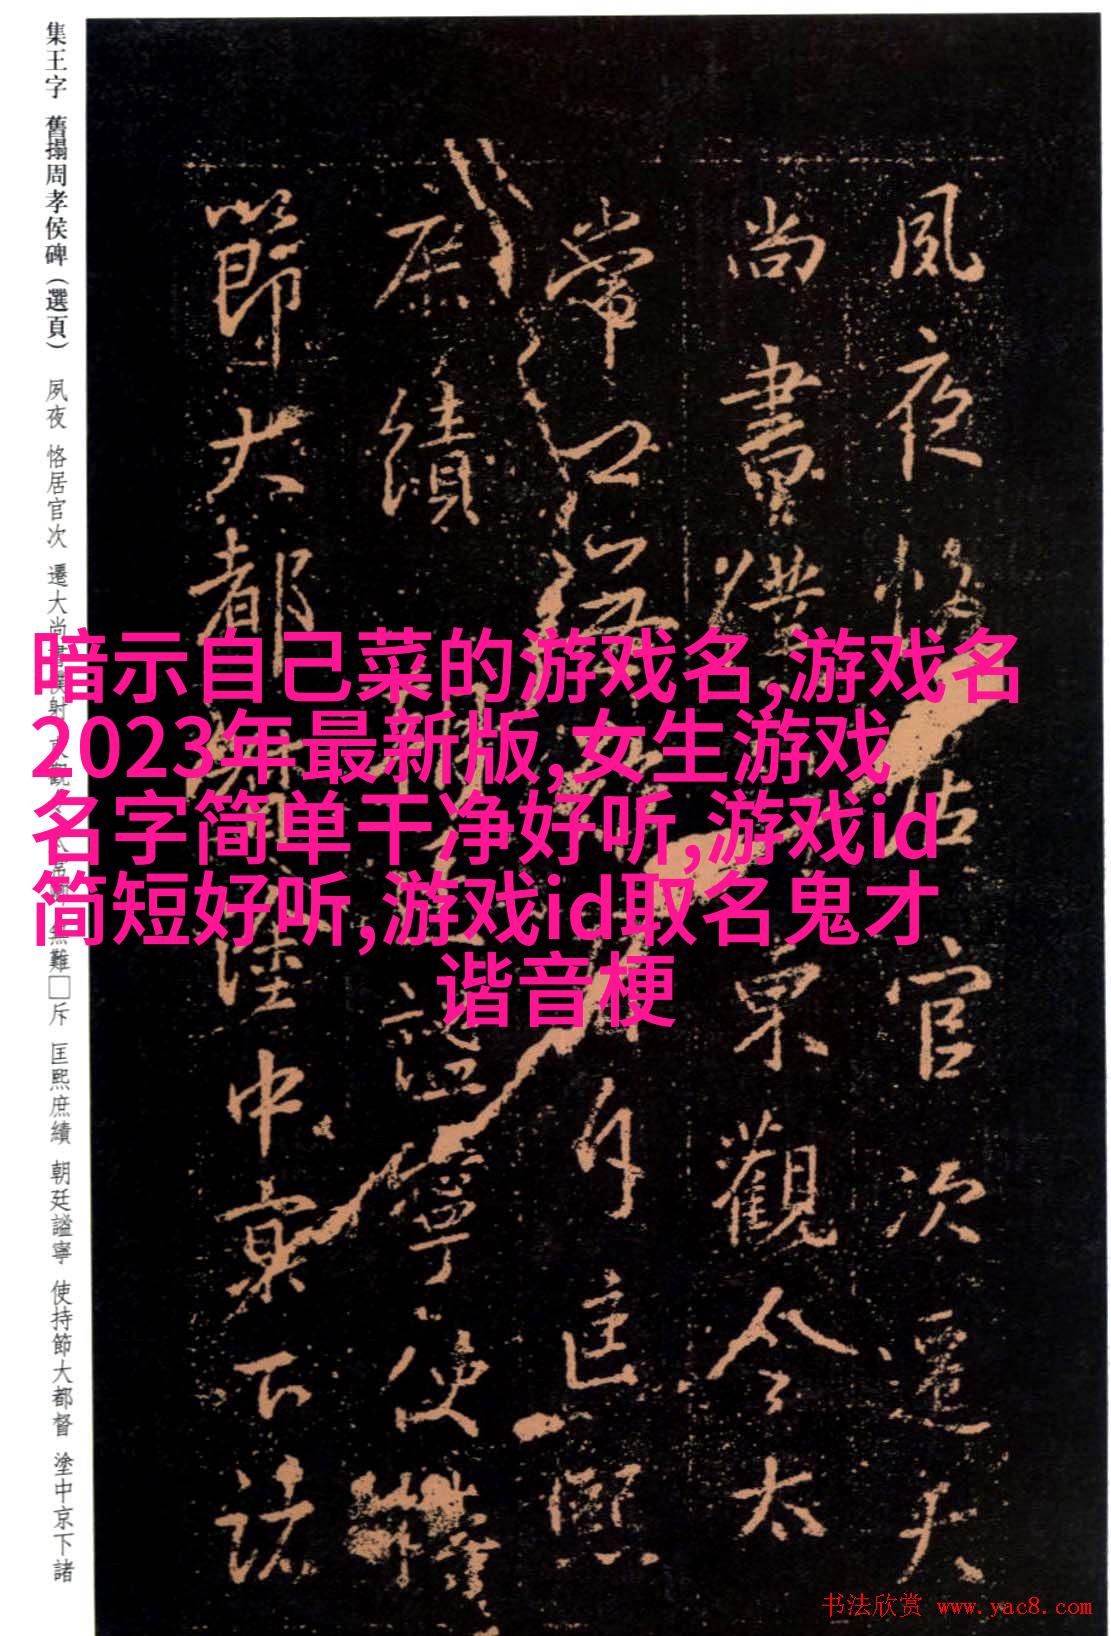 集王字 舊搨周孝侯碑（選頁） 夙夜 恪居官次 遷大尚書僕射 東觀令 太常 無難□斥 匡熙庶績 朝廷謚寧 使持節大都督 塗中京下諸
夙夜恪居官次遷大
尚書僕東觀令太
常 斥匡熙
庶績 謐寧使持
節大都 塗中京下諸
暗示自己菜的游戏名,游戏名
2023年最新版,女生游戏
名字简单干净好听,游戏id
简短好听,游戏id取名鬼才
谐音梗
书法欣赏 www.yac8.com